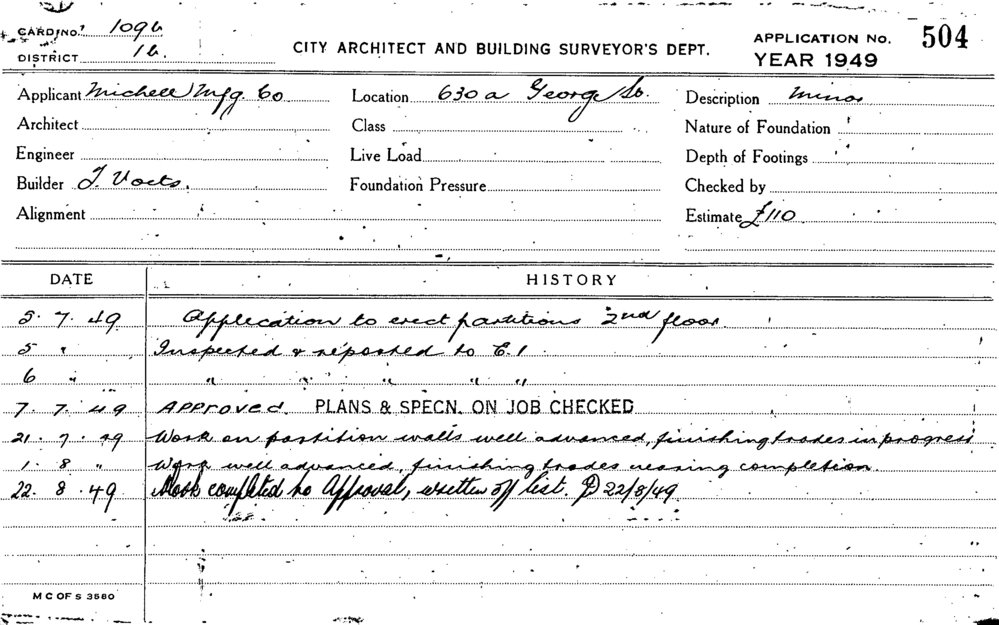 CARD NO. 109b
DISTRICT 16.
CITY ARCHITECT AND BUILDING SURVEYOR'S DEPT.
APPLICATION No. 504
YEAR 1949
Applicant Michell Mfg. Co
Location 630a George St.
Description Minor
Architect
Class
Nature of Foundation
Engineer
Live Load
Depth of Footings
Builder J. Voets.
Foundation Pressure
Checked by
Alignment
Estimate £110
DATE HISTORY
5. 7. 49 Application to erect partitions 2nd floor.
5 " Inspected & reported to C.I.
6 " " " " " "
7. 7. 49 Approved. PLANS & SPECN. ON JOB CHECKED
21. 7. 49 Work on partition walls well advanced, finishing trades in progress
1. 8. " Work well advanced, finishing trades nearing completion.
22. 8. 49 Work completed to Approval, written off list. 22/8/49
M C OF S 3580